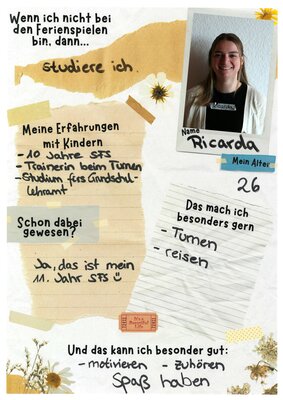 Wenn ich nicht bei
den Ferienspielen
bin, dann...
studiere ich.
Name
Ricarda
Mein Alter
26
Meine Erfahrungen
mit Kindern
- 10 Jahre SFS
- Trainerin beim Turnen
- Studium fürs Grundschul-
lehramt
Das mach ich
besonders gern
- Turnen
- reisen
Schon dabei
gewesen?
Ja, das ist mein
11. Jahr SFS
Und das kann ich besonder gut:
- motivieren - zuhören
Spaß haben